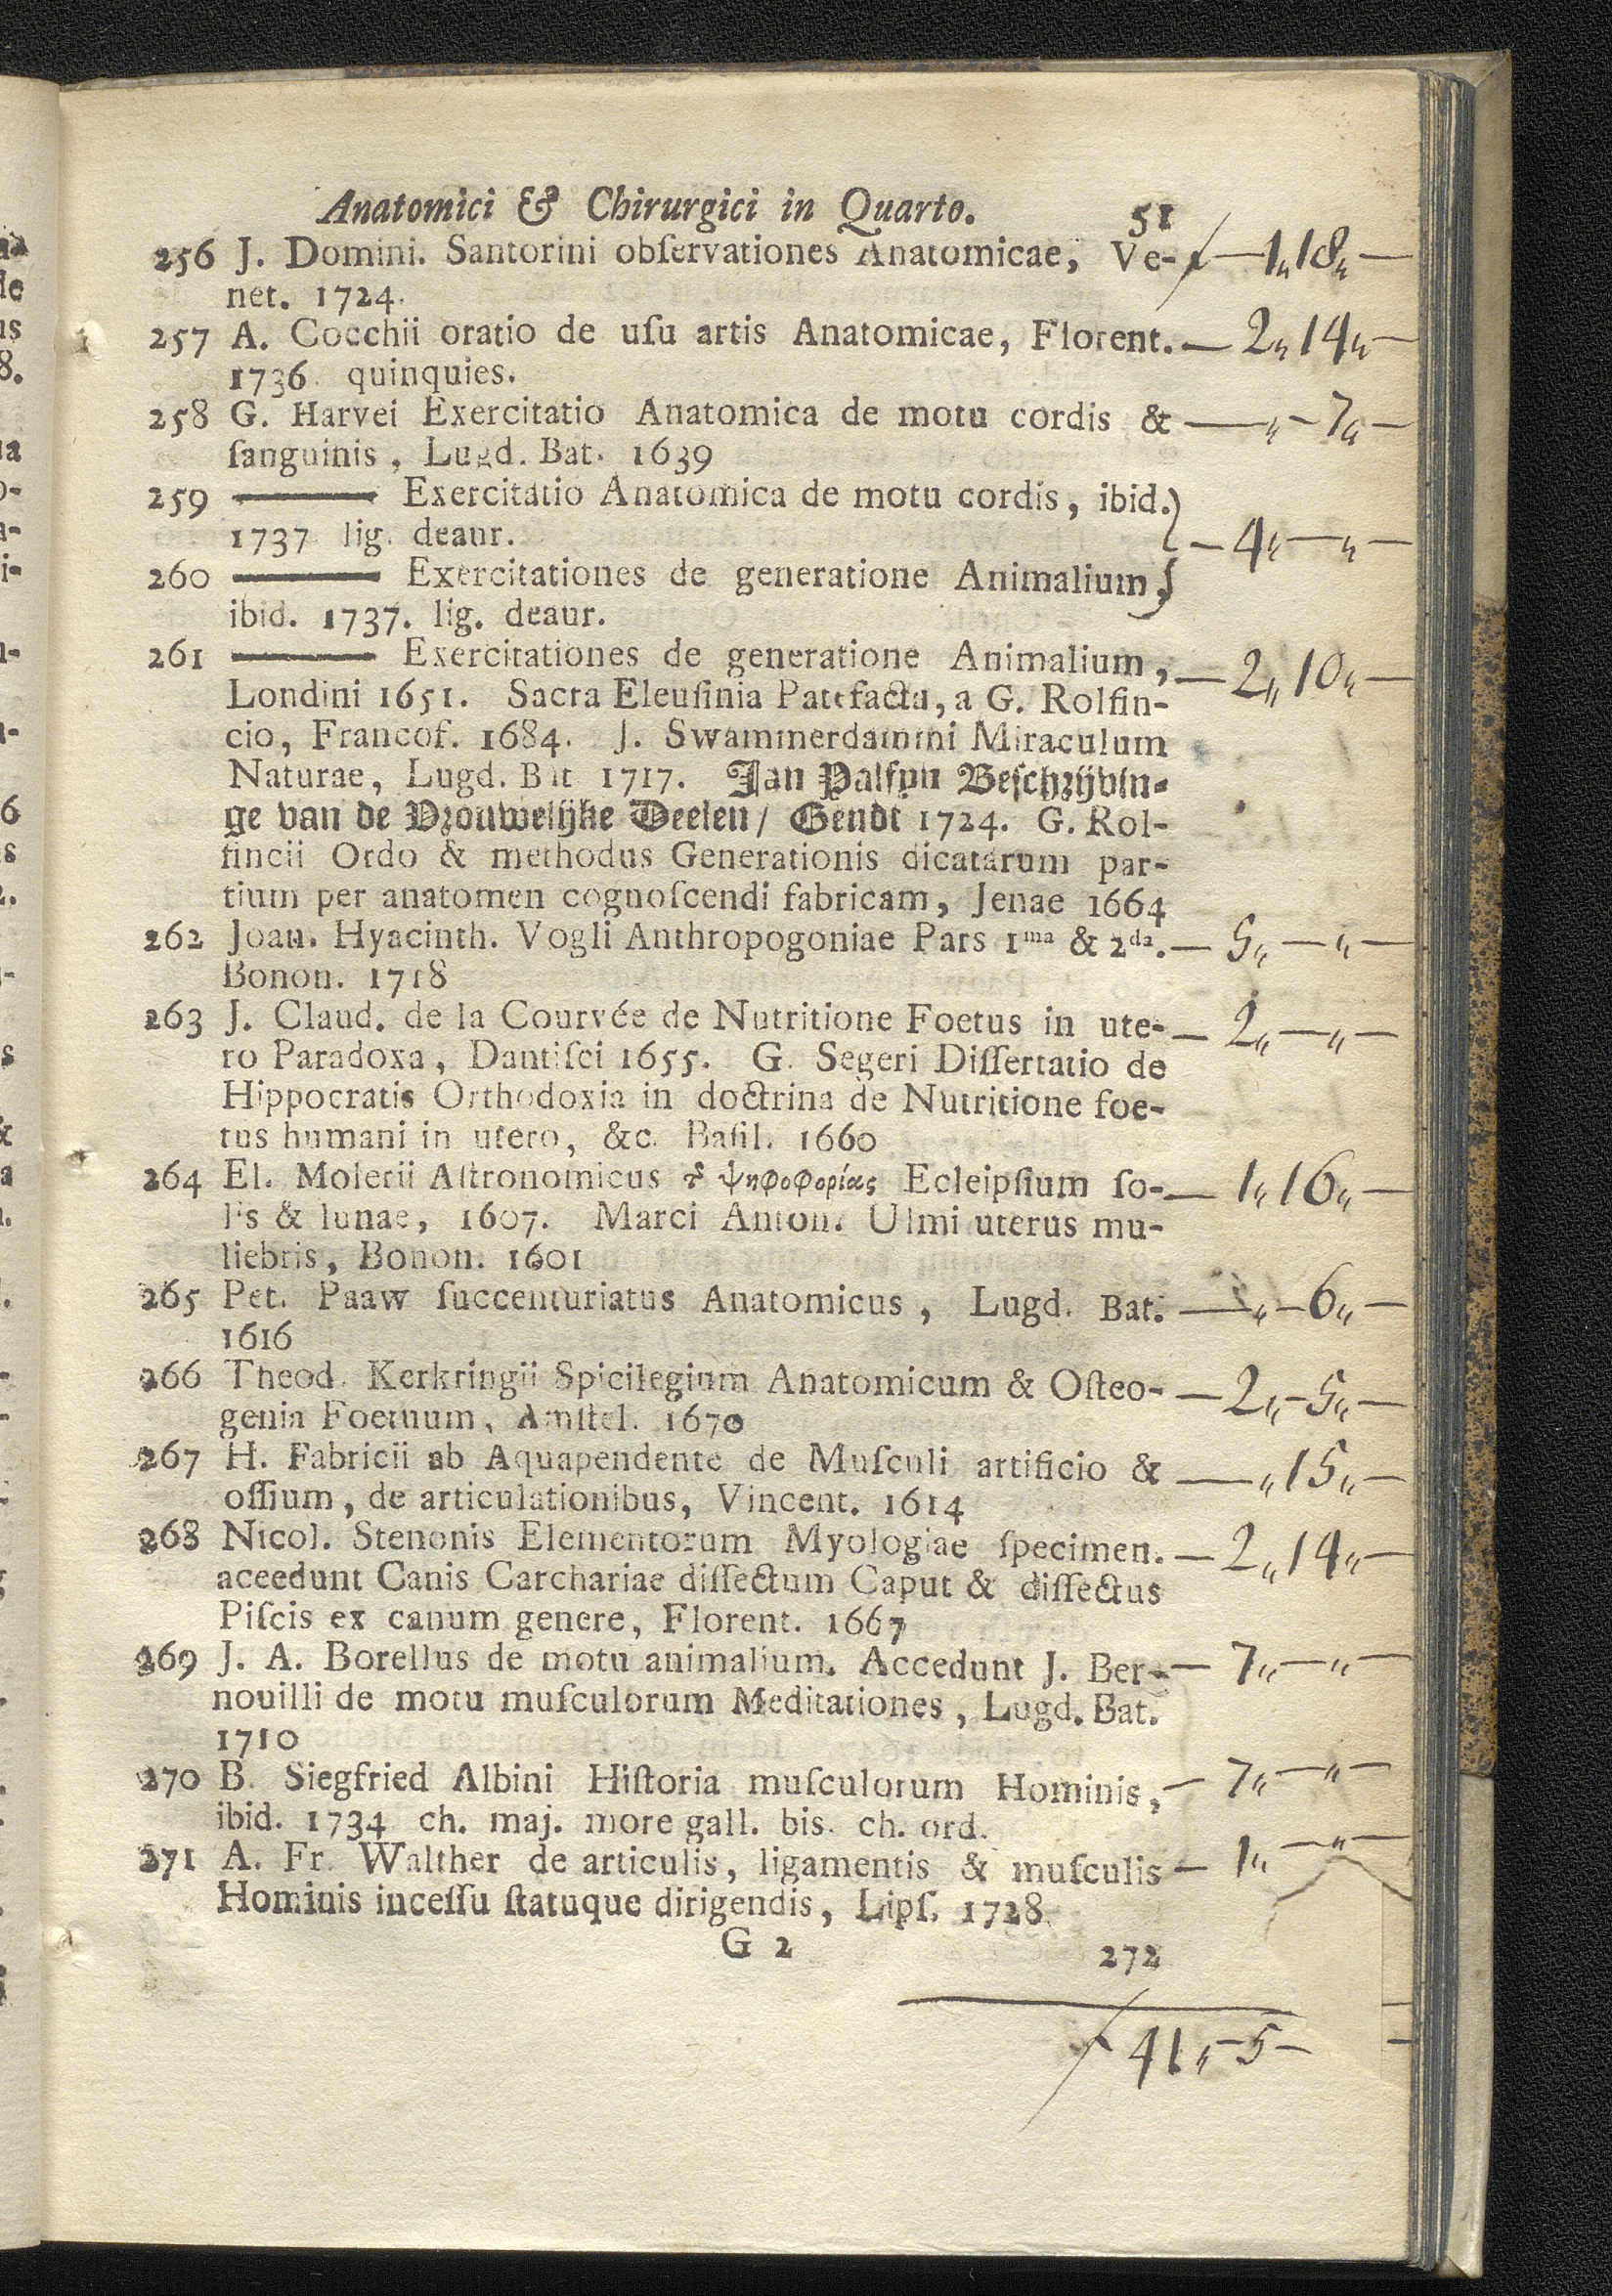 Anatomici & Chirurgici in Quarto. 51
256 J. Domini. Santorini obſervationes Anatomicae, Ve- ƒ — 1„ 18„ —
net. 1724.
257 A. Cocchii oratio de uſu artis Anatomicae, Florent. — 2„ 14„ —
1736. quinquies.
258 G. Harvei Exercitatio Anatomica de motu cordis & — „ — 7„ —
ſanguinis, Lugd. Bat. 1639
259 ——— Exercitatio Anatomica de motu cordis, ibid. }
1737 lig. deaur. — 4„ — „ —
260 ——— Exercitationes de generatione Animalium, }
ibid. 1737. lig. deaur.
261 ——— Exercitationes de generatione Animalium, — 2„ 10„ —
Londini 1651. Sacra Eleuſinia Patefacta, a G. Rolfin-
cio, Francof. 1684. J. Swammerdammi Miraculum
Naturae, Lugd. Bat 1717. Jan Palfyn Beſchrijvin-
ge van de Vrouwelijke Deelen / Gendt 1724. G. Rol-
fincii Ordo & methodus Generationis dicatarum par-
tium per anatomen cognoſcendi fabricam, Jenae 1664
262 Joan. Hyacinth. Vogli Anthropogoniae Pars 1ma & 2da. — 5„ — „ —
Bonon. 1718
263 J. Claud. de la Courvée de Nutritione Foetus in ute- — 2„ — „ —
ro Paradoxa, Dantiſci 1655. G. Segeri Diſſertatio de
Hippocratis Orthodoxia in doctrina de Nutritione foe-
tus humani in utero, &c. Baſil. 1660
264 El. Molerii Aſtronomicus ψηφοφορίας Ecleipſium ſo- — 1„ 16„ —
lis & lunae, 1607. Marci Anton. Ulmi uterus mu-
liebris, Bonon. 1601
265 Pet. Paaw ſuccenturiatus Anatomicus, Lugd. Bat. — „ — 6„ —
1616
266 Theod. Kerkringii Spicilegium Anatomicum & Oſteo- — 2„ — 5„ —
genia Foetuum, Amſtel. 1670
267 H. Fabricii ab Aquapendente de Muſculi artificio & — „ 15„ —
oſſium, de articulationibus, Vincent. 1614
268 Nicol. Stenonis Elementorum Myologiae ſpecimen. — 2„ 14„ —
aceedunt Canis Carchariae diſſectum Caput & diſſectus
Piſcis ex canum genere, Florent. 1667
269 J. A. Borellus de motu animalium. Accedunt J. Ber- — 7„ — „ —
nouilli de motu muſculorum Meditationes, Lugd. Bat.
1710
270 B. Siegfried Albini Hiſtoria muſculorum Hominis, — 7„ — „ —
ibid. 1734 ch. maj. more gall. bis. ch. ord.
271 A. Fr. Walther de articulis, ligamentis & muſculis — 1„ — „ —
Hominis inceſſu ſtatuque dirigendis, Lipſ. 1728.
G 2 272
ƒ 41„ — 5 —